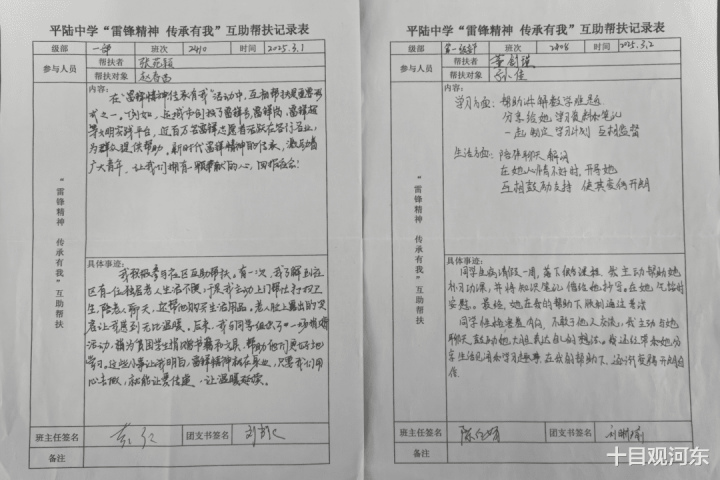 平陆中学“雷锋精神 传承有我”互助帮扶记录表
级部 一部 班次 2410 时间 2025.3.1
参与人员 帮扶者
帮扶对象
“雷锋精神 传承有我”互助帮扶
内容:
在“雷锋精神传承有我”活动中,互相帮扶是重要形
式之一。例如,
等文明实践平台,
为群众提供帮助。新时代雷锋精神的传承,激励着
广大青年,让我们拥有一颗奉献的心,回报社会!
具体事迹:
我积极参与社区互助帮扶。有一次,我了解到社
区有一位独居老人生活不便,于是我主动上门帮忙打扫卫
生,陪老人聊天,还帮他购买生活用品。老人脸上露出的笑
容让我感到无比温暖。后来,我与同学组织了一场捐赠
活动,为贫困学生捐赠书籍和文具,帮助他们更好地
学习。这些小事让我明白,雷锋精神就在身边,只要我们用
心去做,就能让爱传递,让温暖延续。
班主任签名 团支书签名
备注
平陆中学“雷锋精神 传承有我”互助帮扶记录表
级部 班次 2408 时间 2025.3.2
参与人员 帮扶者
帮扶对象 孙佳
“雷锋精神 传承有我”互助帮扶
内容:
学习方面: 帮助讲解数学难题
分享给她学习资料和笔记
一起制定学习计划 互相监督
生活方面: 陪伴聊天 解闷
在她心情不好时,开导她
互相鼓励支持 使其变得开朗
具体事迹:
同学因病请假一周,落下很多课程,我主动帮助她
补习功课,并将知识笔记借给她抄写。在她气馁时
安慰。最终,她在我的帮助下顺利通过考试
同学性格有些内向,不敢与他人交流,我主动与她
聊天,鼓励她大胆表达自己的想法。我还经常和她分
享生活见闻和学习趣事,在我的帮助下,逐渐变得开朗
自信
班主任签名 团支书签名
备注
十目观河东